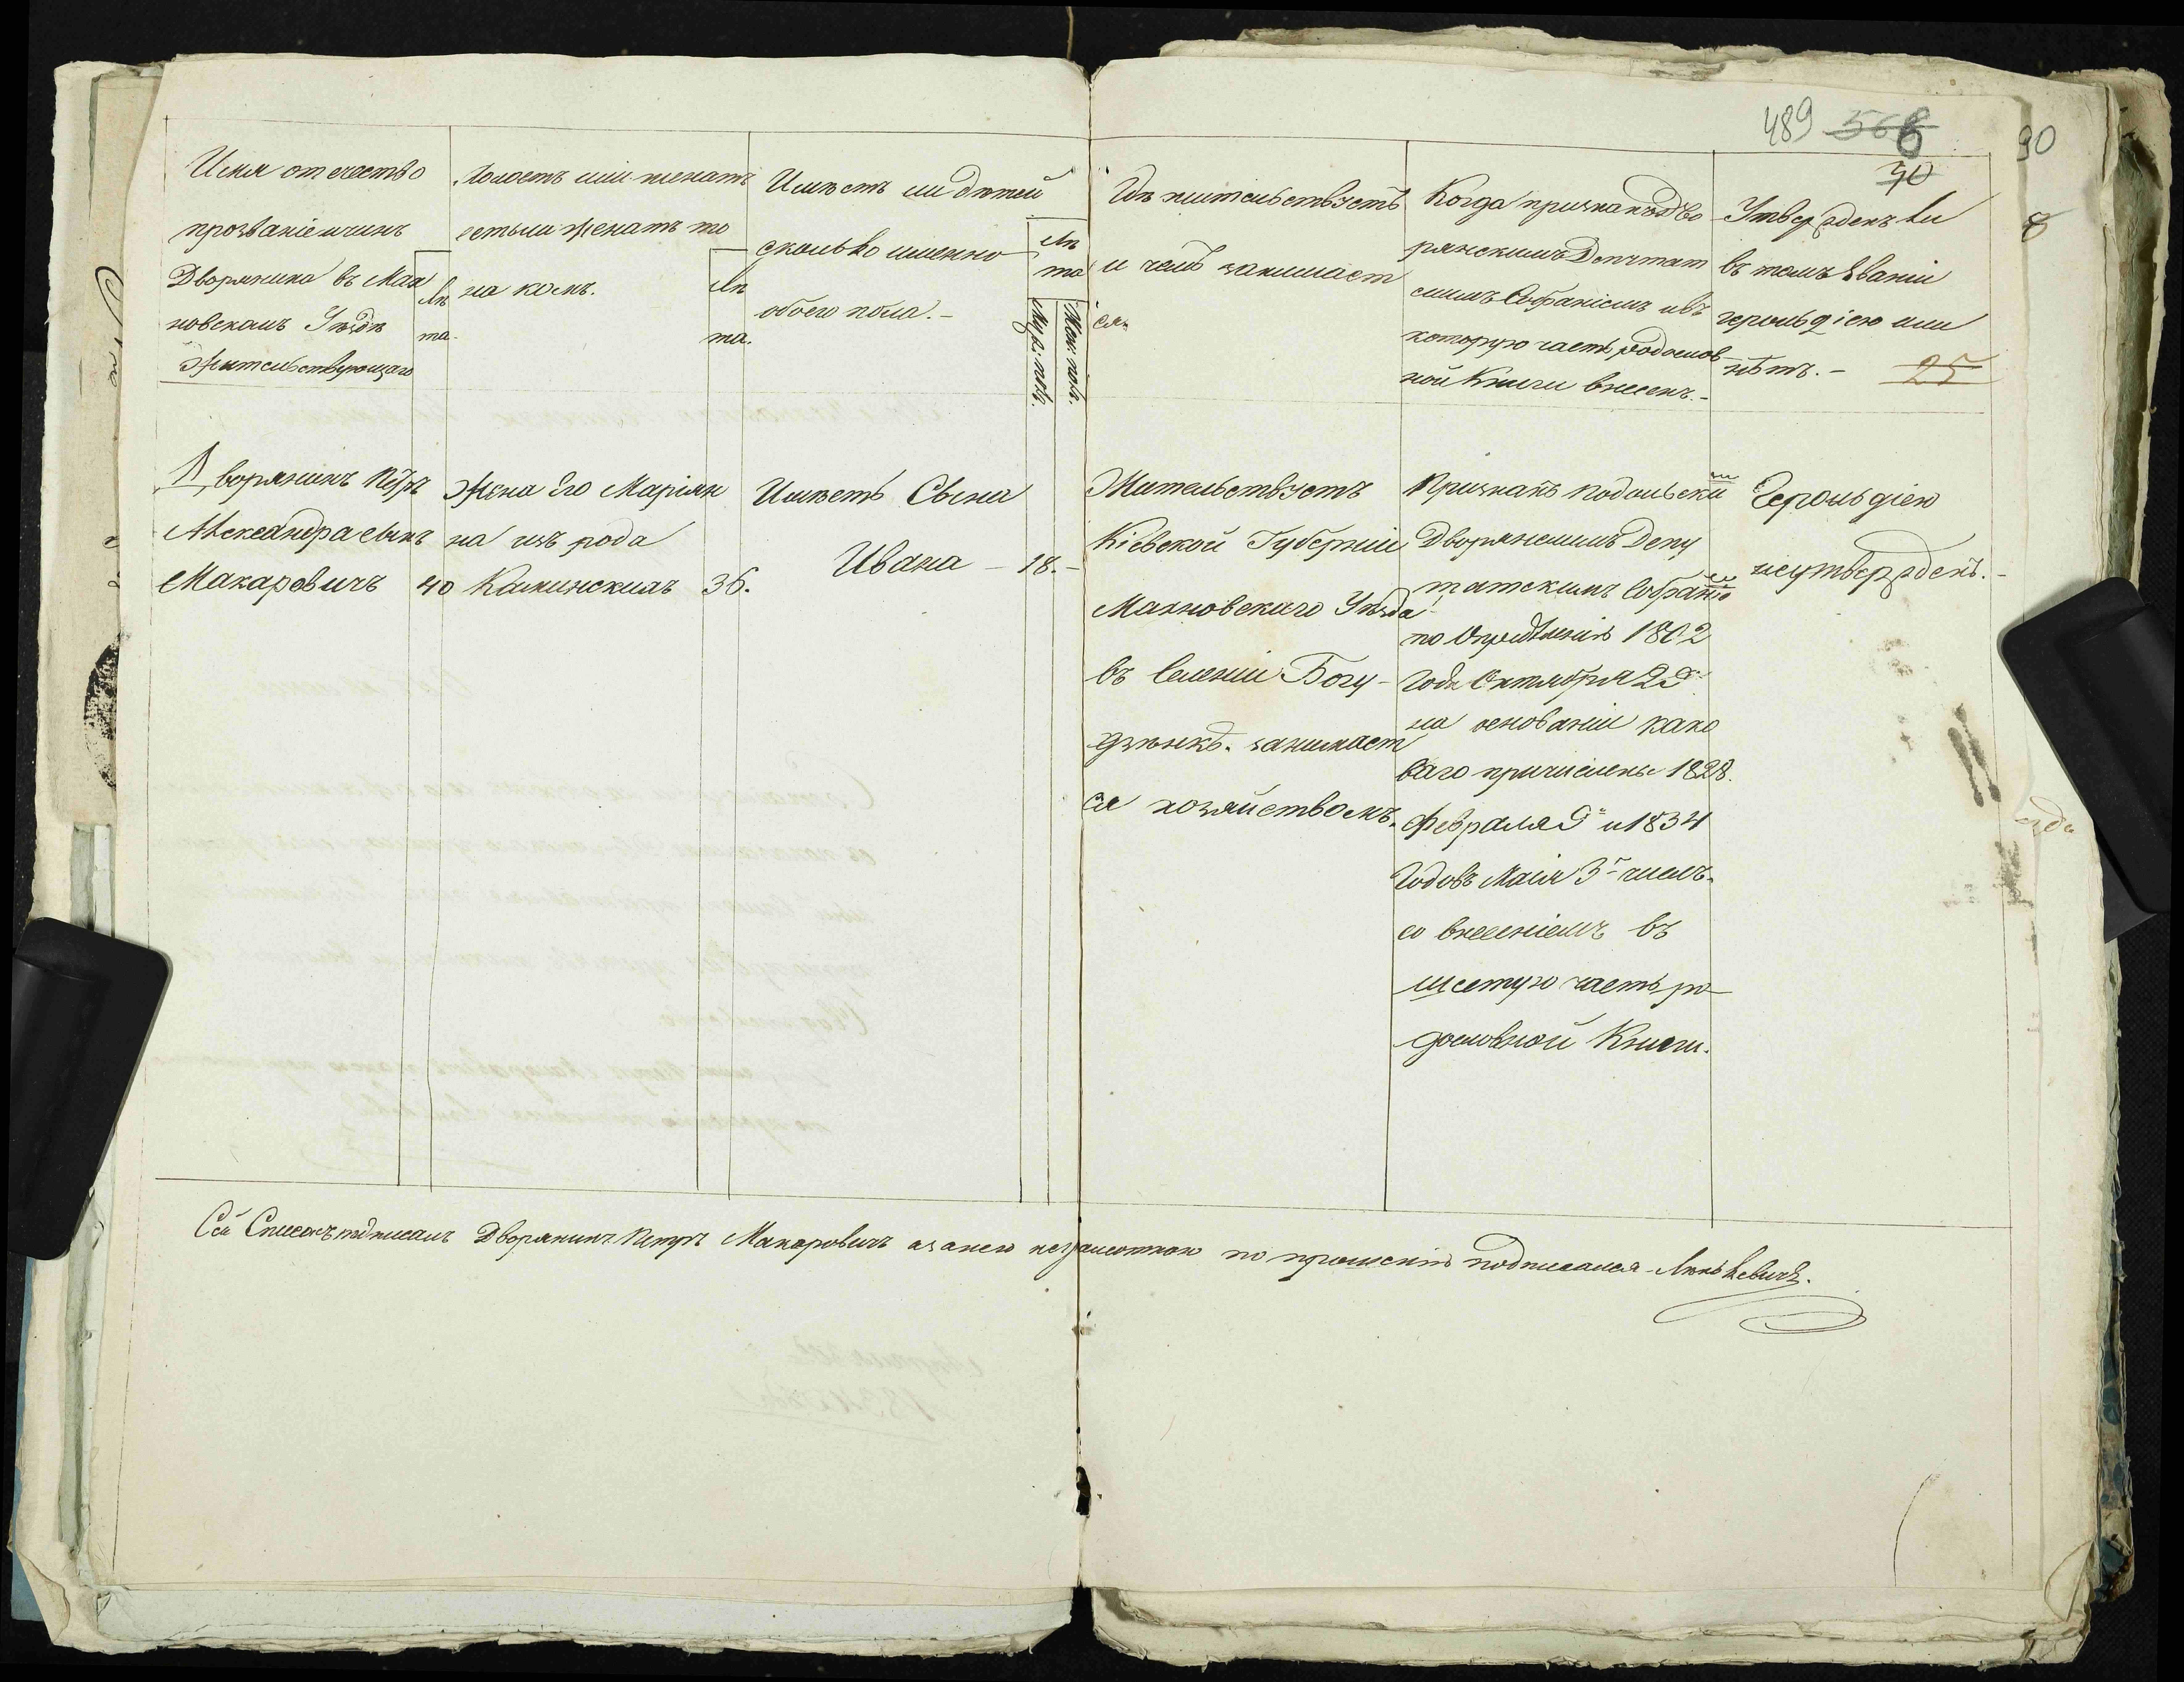 489 568
90
70
8
Имя отечество
прозваніе и чинъ
Дворянина въ Мах
новскомъ Уѣздѣ
Жительствующаго
Лѣ
та.
Холостъ или женатъ
естьли женатъ то
на комъ.
Лѣ
та.
Имѣетъ ли дѣтей
сколько именно
обоего пола.-
Лѣ
та
Муж: полъ.
Жен: полъ.
Гдѣ жительствуетъ
и чемъ занимает
ся.
Когда признанъ Дво
рянскимъ Депутат
скимъ Собраніемъ и въ
которую часть родослов
ной Книги внесенъ.-
Утвержденъ ли
въ томъ Званіи
герольдіею или
нѣтъ.- 25
Дворянинъ Петръ
Александра сынъ
Макаровичъ 40
Жена Его Маріян
на изъ рода
Каминскихъ 36.
Имѣетъ Сына
Ивана - 18.-
Жительствуетъ
Кіевской Губерніи
Махновскаго Уѣзда
въ Селеніи Богу-
дзѣнкѣ. занимает
ся хозяйствомъ.
Признанъ Подольски
Дворянскимъ Депу
татскимъ Собраніе
по Опредѣленію 1802
Года Октября 25
на основаніи како
ваго причислены 1828.
Февраля 9 и 1834
Годовъ Маія 3 числъ.
со внесеніемъ въ
шестую часть ро-
дословной Книги.
Герольдіею
неутвержденъ.-
Сей Списокъ подписалъ Дворянинъ Петръ Макаровичъ а за него неграмотного по прошенію подписался